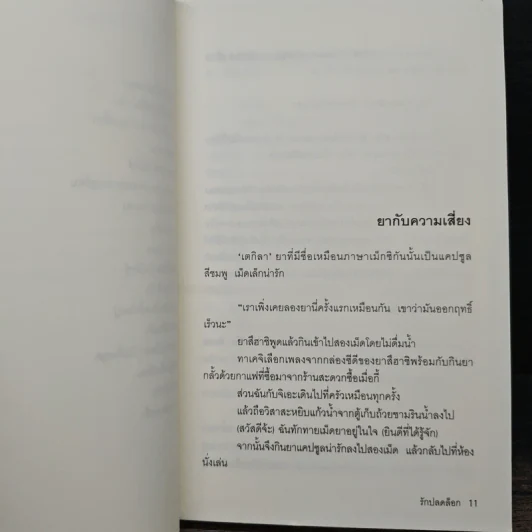 ยากับความเสี่ยง
'เตกิลา' ยาที่มีชื่อเหมือนภาษาเม็กซิกันนั้นเป็นแคปซูล
สีชมพู เม็ดเล็กน่ารัก
"เราเพิ่งเคยลองยานี่ครั้งแรกเหมือนกัน เขาว่ามันออกฤทธิ์
เร็วนะ"
ยาสึฮาชิพูดแล้วกินเข้าไปสองเม็ดโดยไม่ดื่มน้ำ
ทาเคจิเลือกเพลงจากกล่องซีดีของยาสึฮาชิพร้อมกับกินยา
กลั้วด้วยกาแฟที่ซื้อมาจากร้านสะดวกซื้อเมื่อกี้
ส่วนฉันกับจิเอะเดินไปที่ครัวเหมือนทุกครั้ง
แล้วถือวิสาสะหยิบแก้วน้ำจากตู้เก็บถ้วยชามรินน้ำลงไป
(สวัสดีจ้ะ) ฉันทักทายเม็ดยาอยู่ในใจ (ยินดีที่ได้รู้จัก)
จากนั้นจึงกินยาแคปซูลน่ารักลงไปสองเม็ด แล้วกลับไปที่ห้อง
นั่งเล่น
รักปลดล็อก 11